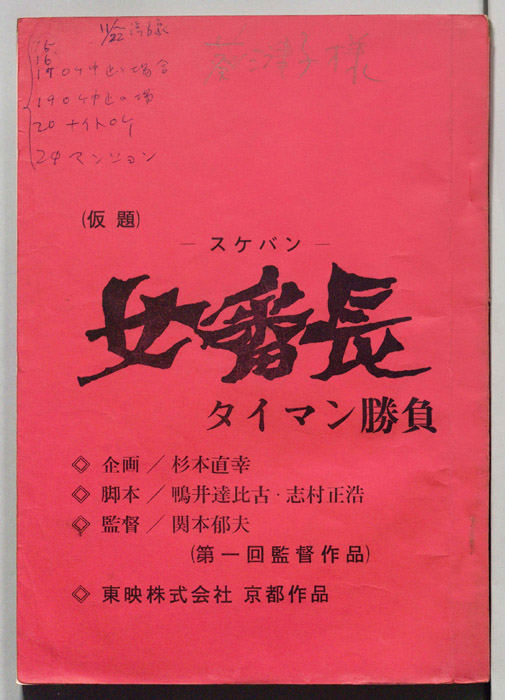 11/22
15
16
17 ロケ中止の場合
190ケ中止の場
20 ナイトロケ
24 マンション
様
(仮題)
― スケバン ―
女番長
タイマン勝負
◇ 企画／杉本直幸
◇ 脚本／鴨井達比古・志村正浩
◇ 監督／関本郁夫
(第一回監督作品)
◇ 東映株式会社 京都作品